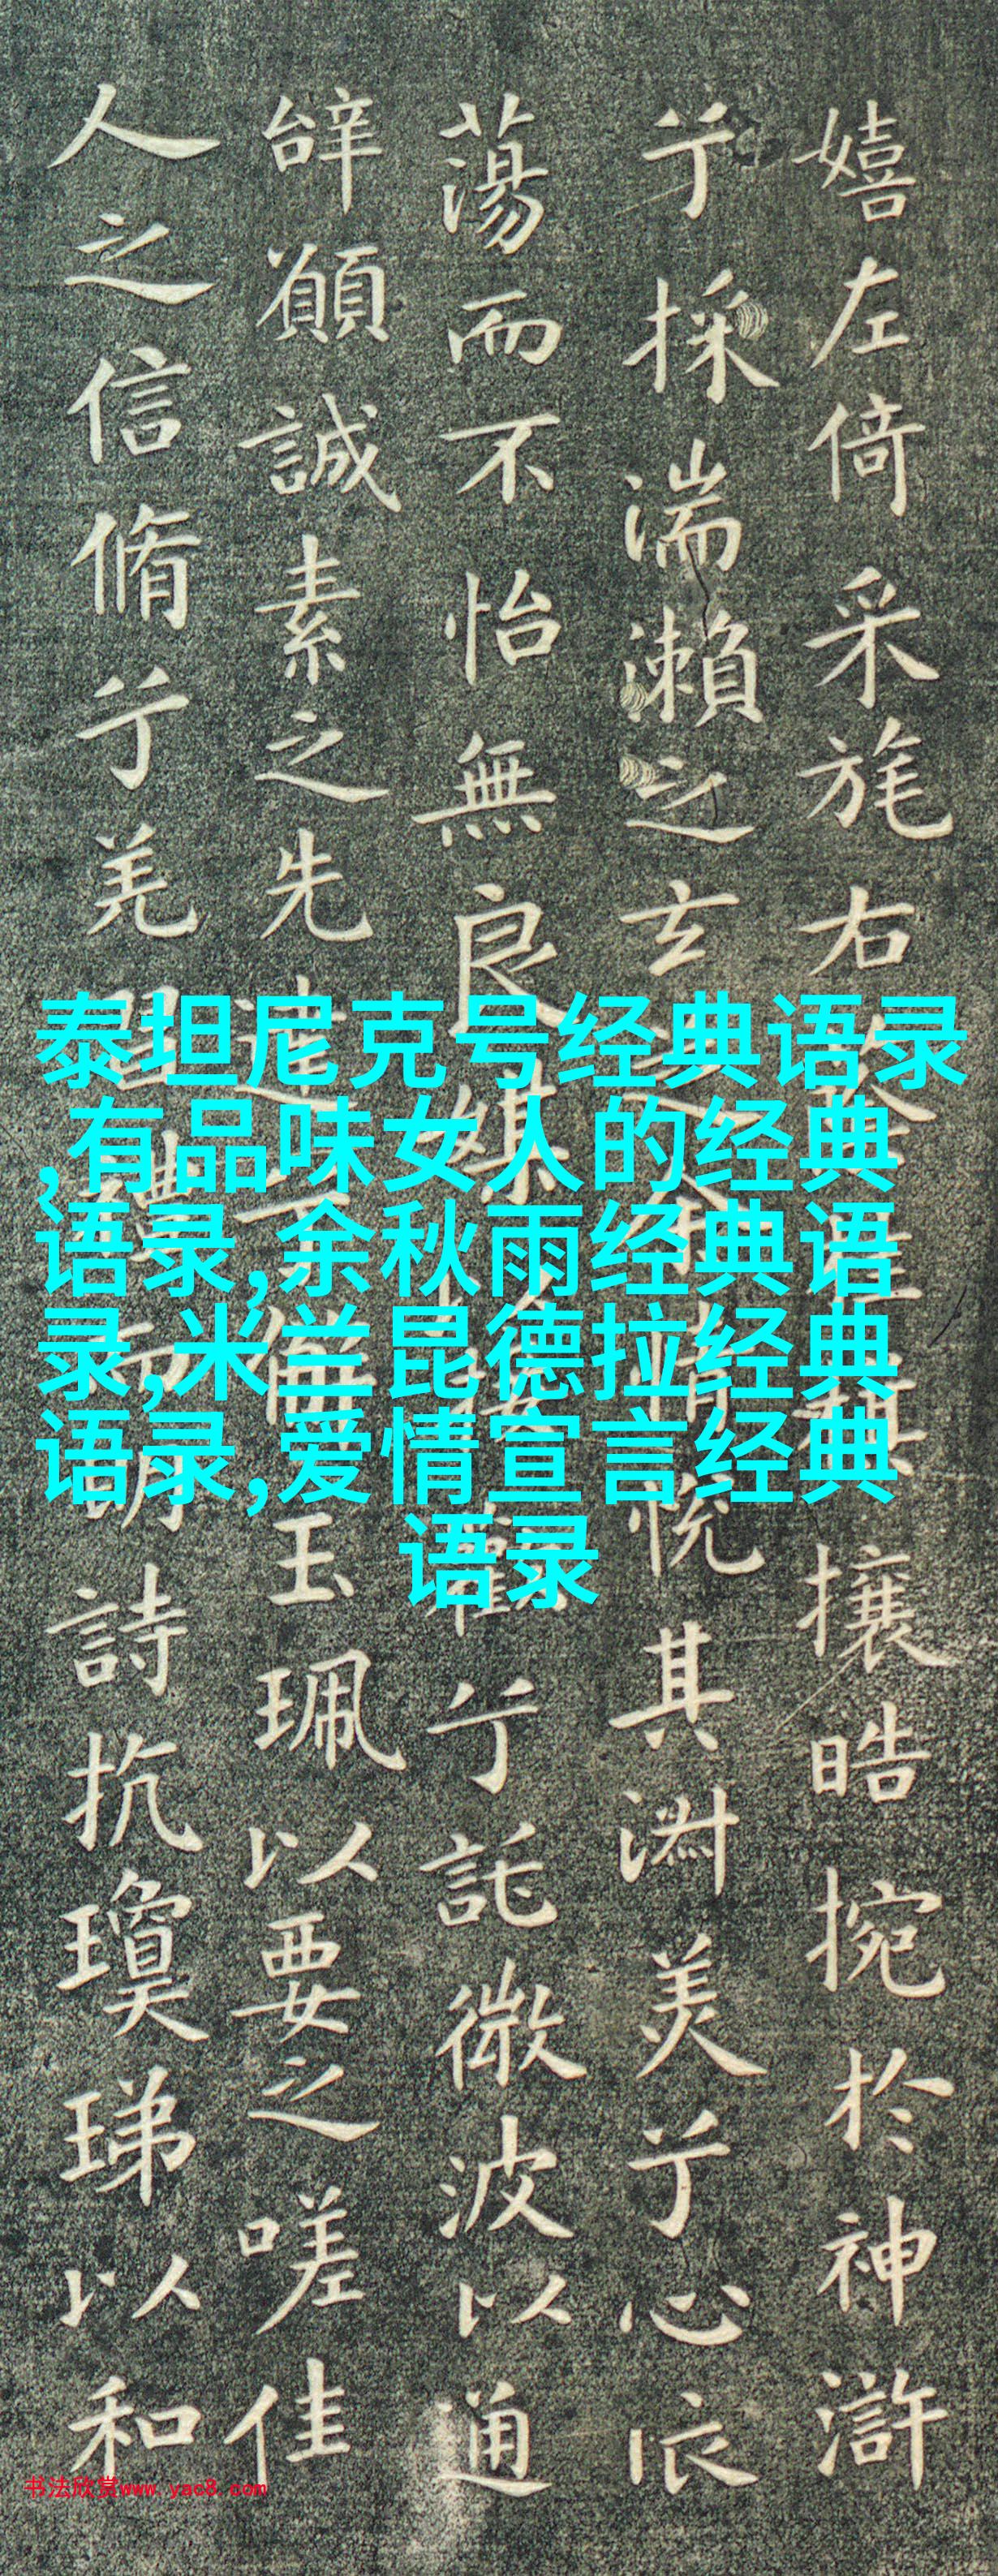 嬉左倚采旄右攘皓捥於神滸
兮採湍瀨之玄情悅其淑美兮心依
蕩而不怡無良媒接兮託微波以通
辭願誠素之先達玉珮以要之嗟佳
人之信脩兮羌詩抗瓊珶以和
泰坦尼克号经典语录
,有品味女人的经典
语录,余秋雨经典语
录,米兰昆德拉经典
语录,爱情宣言经典
语录
书法欣赏www.yac8.com